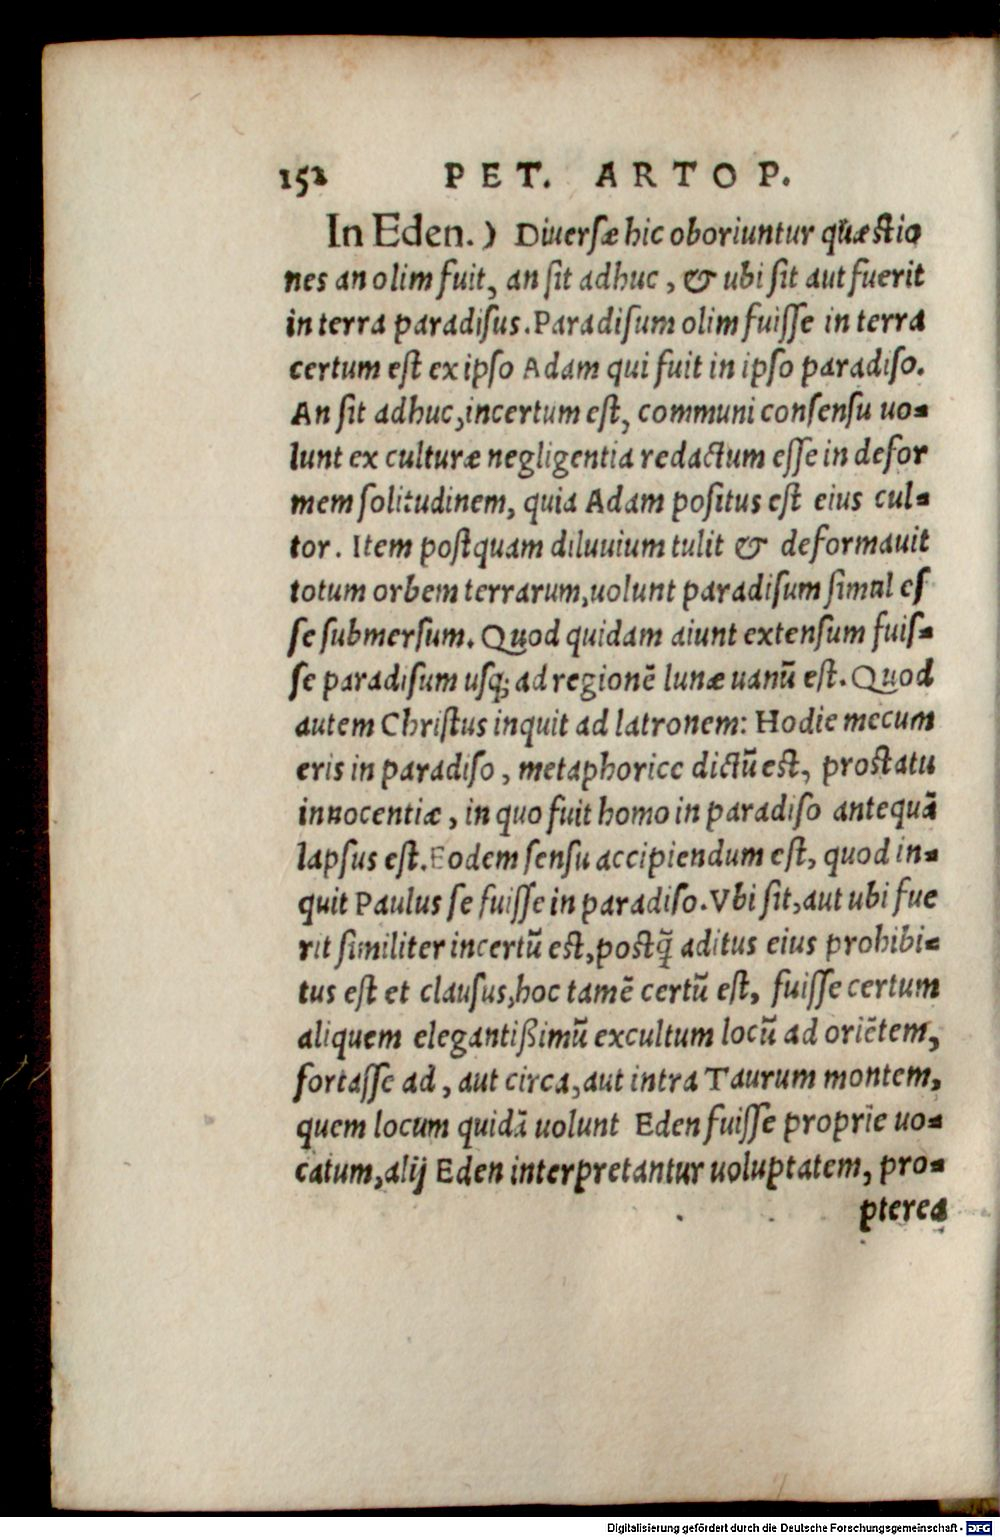 152 PET. ARTOP.
In Eden.) Diuersæ hic oboriuntur quæstio
nes an olim fuit, an sit adhuc, & ubi sit aut fuerit
in terra paradisus. Paradisum olim fuisse in terra
certum est ex ipso Adam qui fuit in ipso paradiso.
An sit adhuc, incertum est, communi consensu uo-
lunt ex culturæ negligentia redactum esse in defor
mem solitudinem, quia Adam positus est eius cul-
tor. Item postquam diluuium tulit & deformauit
totum orbem terrarum, uolunt paradisum simul es
se submersum. Quod quidam aiunt extensum fuis-
se paradisum usq; ad regionẽ lunæ uanũ est. Quod
autem Christus inquit ad latronem: Hodie mecum
eris in paradiso, metaphorice dictũ est, pro statu
innocentiæ, in quo fuit homo in paradiso antequã
lapsus est. Eodem sensu accipiendum est, quod in-
quit Paulus se fuisse in paradiso. Vbi sit, aut ubi fue
rit similiter incertũ est, postq̃ aditus eius prohibi-
tus est et clausus, hoc tamẽ certũ est, fuisse certum
aliquem elegantißimũ excultum locũ ad oriẽtem,
fortasse ad, aut circa, aut intra Taurum montem,
quem locum quidã uolunt Eden fuisse proprie uo-
catum, alij Eden interpretantur uoluptatem, pro-
pterea
Digitalisierung gefördert durch die Deutsche Forschungsgemeinschaft - DFG